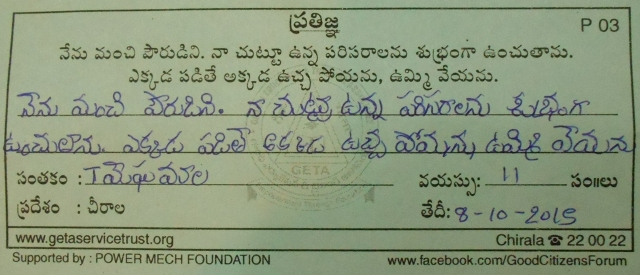 ప్రతిజ్ఞ P 03
నేను మంచి పౌరుడిని. నా చుట్టూ ఉన్న పరిసరాలను శుభ్రంగా ఉంచుతాను.
ఎక్కడ పడితే అక్కడ ఉచ్చ పోయను, ఉమ్మి వేయను.
నేను మంచి పౌరుడిని. నా చుట్టు ఉన్న పరిసరాలను శుభ్రంగా
ఉంచుతాను. ఎక్కడ పడితే అక్కడ ఉచ్చ పోయ్యను ఉమ్మి వేయను
సంతకం : T మేఘమాల వయస్సు: 11 సం॥లు
GETA
ప్రదేశం : చీరాల తేదీ: 8-10-2015
www.getaservicetrust.org Chirala ☎ 22 00 22
Supported by : POWER MECH FOUNDATION www.facebook.com/GoodCitizensForum